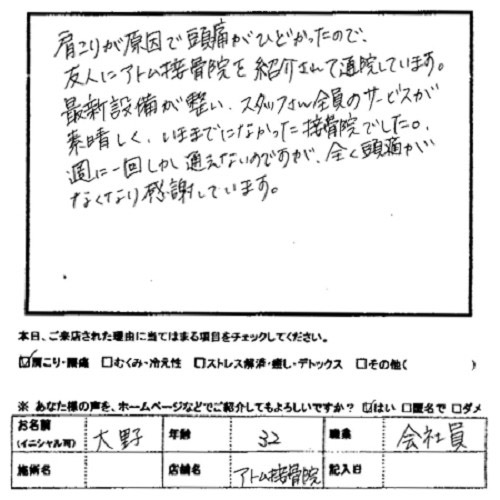 肩こりが原因で頭痛がひどかったので、
友人にアトム接骨院を紹介されて通院しています。
最新設備が整い、スタッフさん全員のサービスが
素晴しく、いままでになかった接骨院でした。
週に一回しか通えないのですが、全く頭痛が
なくなり感謝しています。
本日、ご来店された理由に当てはまる項目をチェックしてください。
☑肩こり・腰痛 □むくみ・冷え性 □ストレス解消・癒し・デトックス □その他( )
※ あなた様の声を、ホームページなどでご紹介してもよろしいですか? ☑はい □匿名で □ダメ
お名前(イニシャル可) 大野 年齢 32 職業 会社員
施術名 店舗名 アトム接骨院 記入日